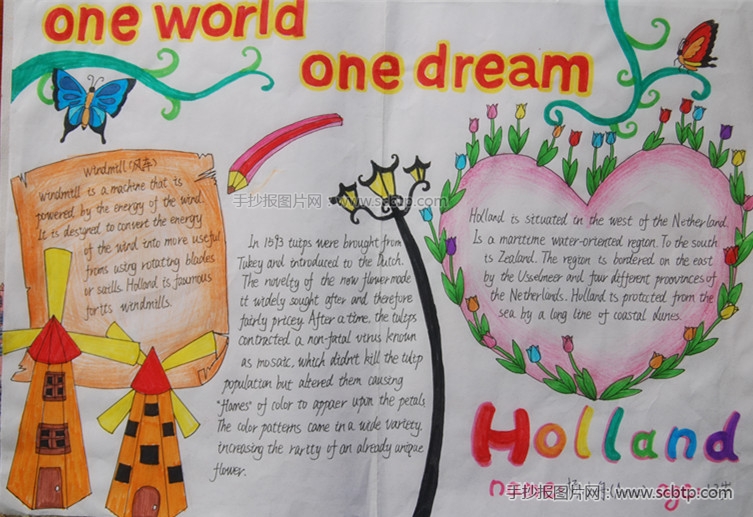 one world
one dream
Windmill (风车)
Windmill is a machine that is
powered by the energy of the wind.
It is designed to convert the energy
of the wind into more useful
froms using rotating blades
or saills. Holland is faoumous
for its windmills.
手抄报图片网:www.scbtp.com
In 1593 tulips were brought from
Tukey and introduced to the Dutch.
The novelty of the now flower made
it widely sought after and therefore
fairly pricey. After a time, the tulips
contracted a non-fatal virus known
as mosaic, which didn't kill the tulip
population but altered them causing
"flames" of color to appaer upon the petals.
The color patterns came in a wide variety,
increasing the rarity of an already unique
flower.
Holland is situated in the west of the Netherland.
Is a maritime water-oriented region. To the south
is Zealand. The region is bordered on the east
by the Usselmeer and four different proovinces of
the Netherlands. Holland is protected from the
sea by a long line of coastal dunes.
Holland
name
手抄报图片网:www.scbtp.com